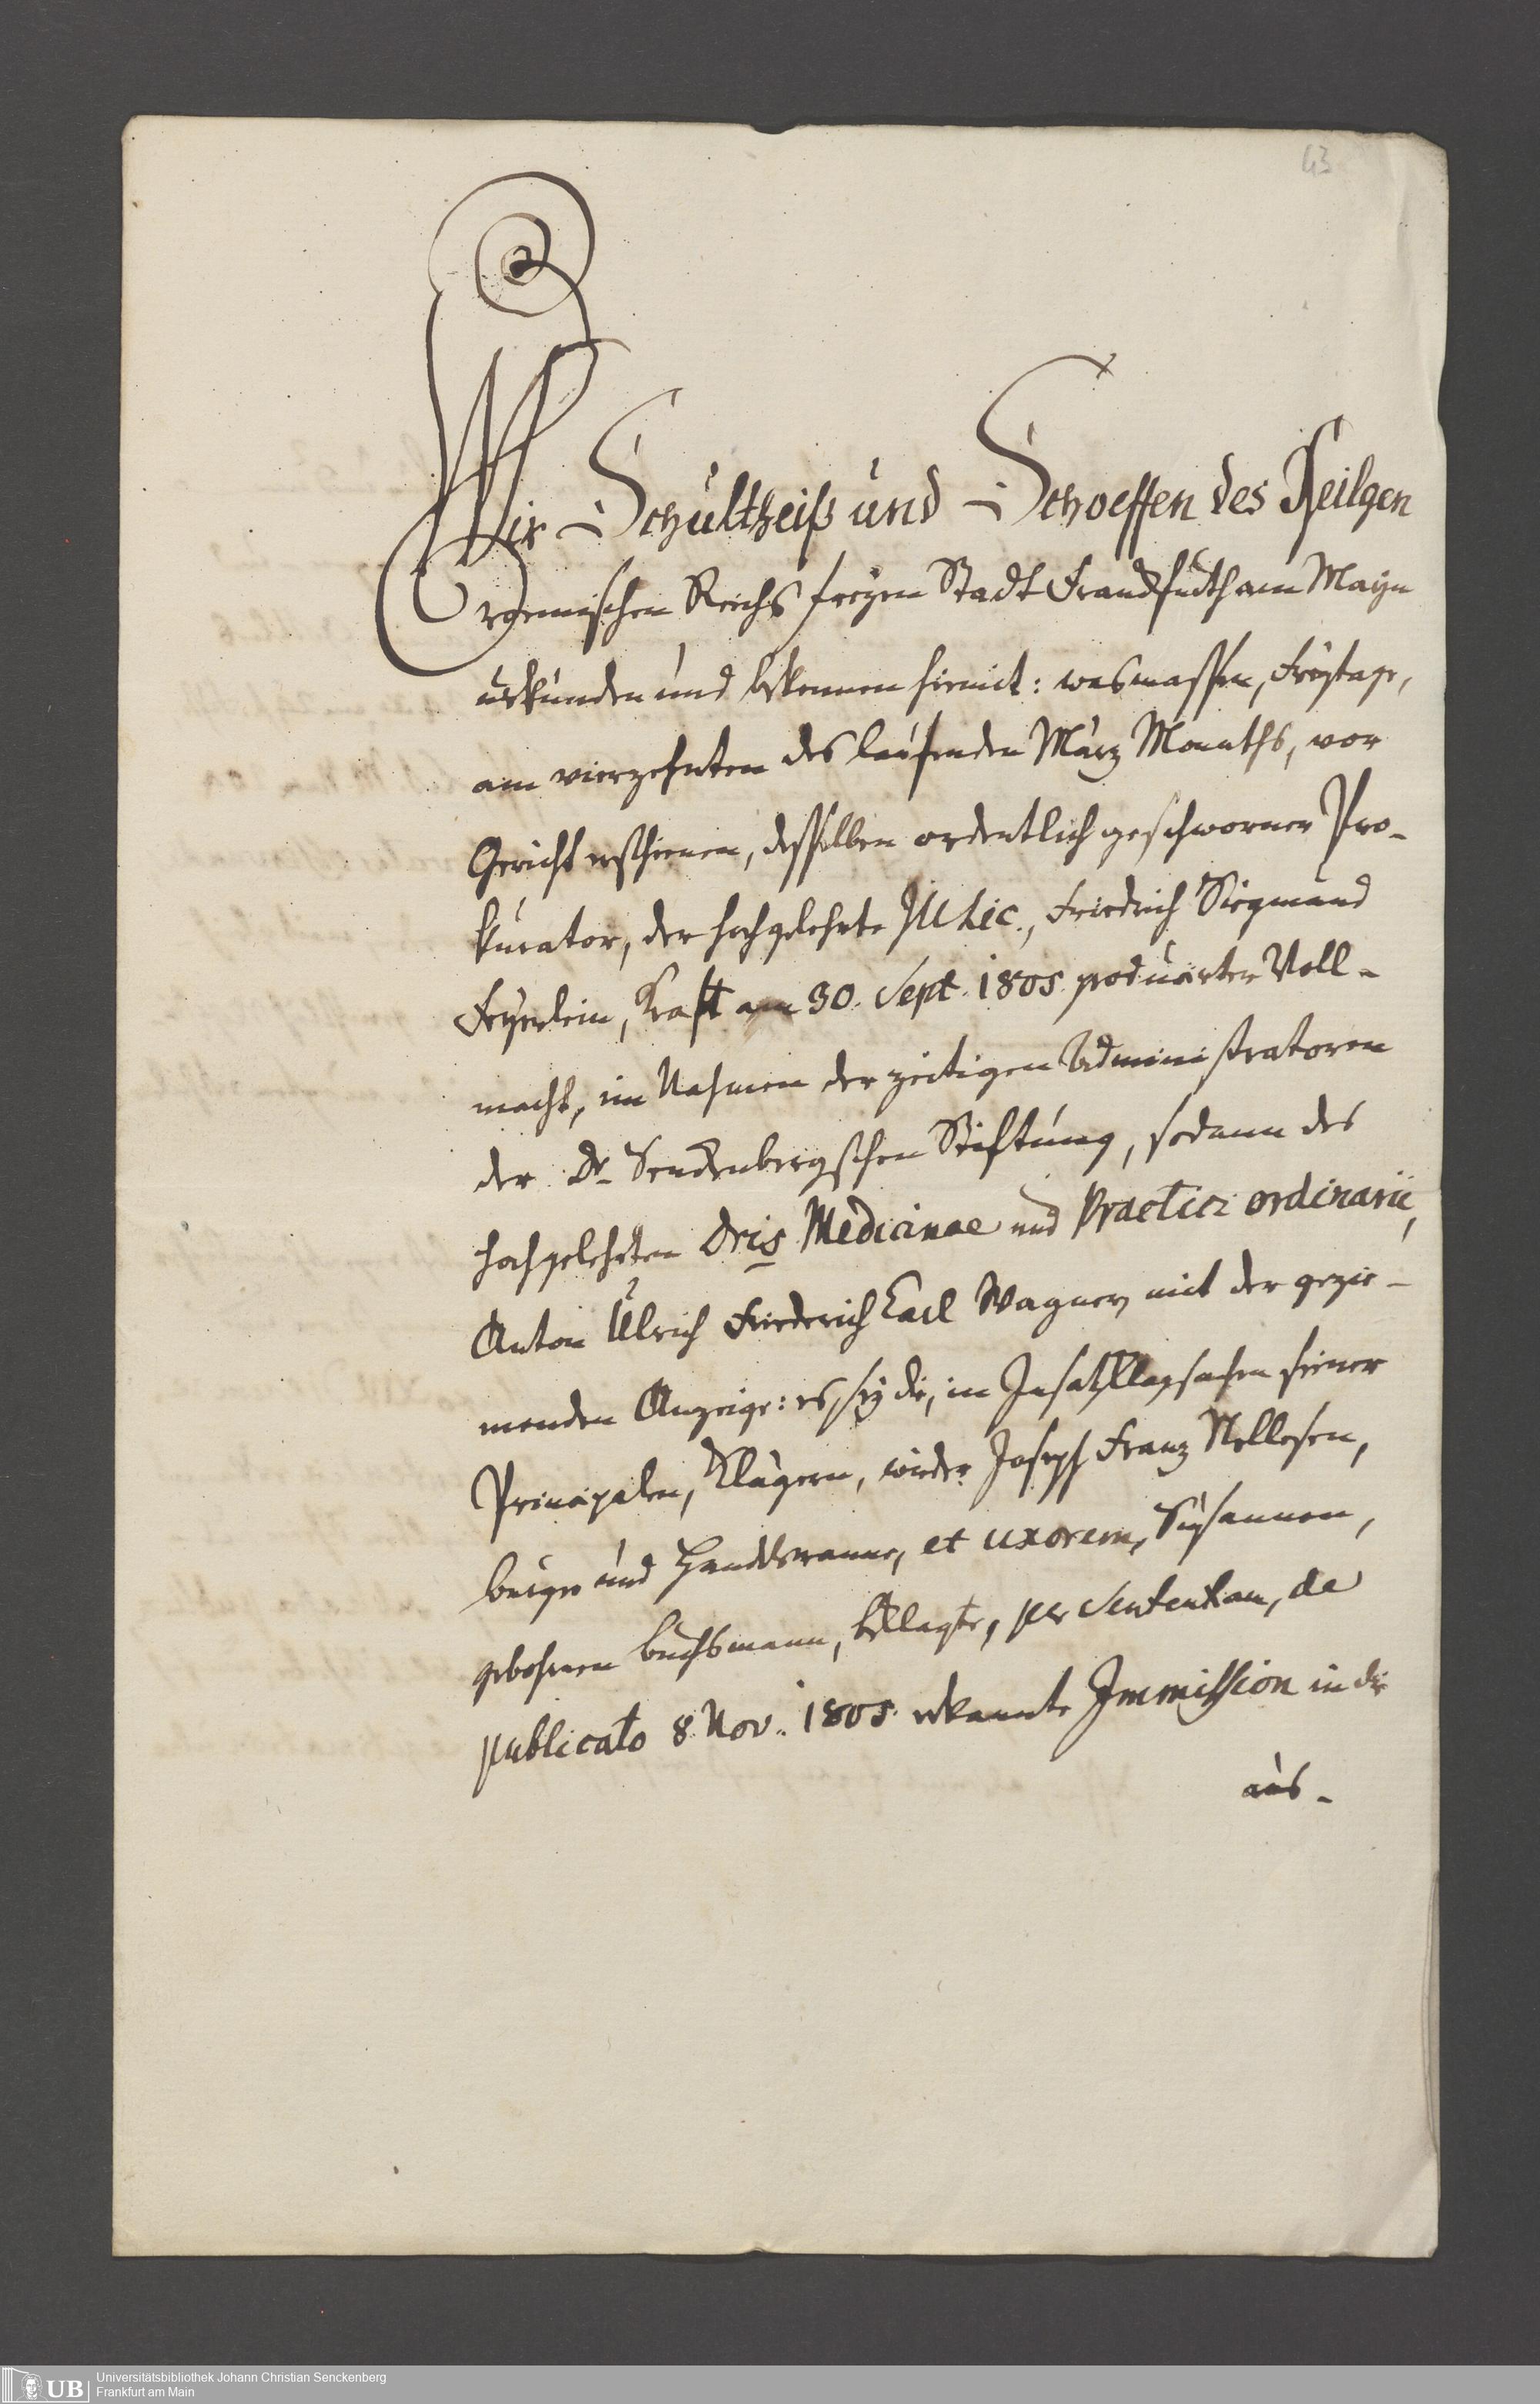 43
Wir Schultheiß und Schoeffen des Heilgen
roemischen Reichs freyen Stadt Franckfurth am Mayn
urkunden und bekennen hiemit: wasmassen, Freytags,
am vierzehnten des laufenden März Monaths, vor
Gericht erschienen, desselben ordentlich geschworner Pro-
kurator, der hochgelehrte JU Lic., Friedrich Siegmund
Feyerlein, Kraft am 30. Sept. 1805. producirter Voll-
macht, im Nahmen der zeitigen Administratoren
der Dr. Senckenbergschen Stiftung, sodann des
hochgelehrten Dris Medicinae und Practici ordinarii,
Anton Ulrich Friederich Carl Wagner, mit der gezie-
menden Anzeige: es sey die, in Insatzklagsachen seiner
Principalen, Klägern, wieder Joseph Franz Nellesen,
burger und Handelsmann, et uxorem, Susannen,
gebohrnen Buchsmann, beklagte, per Sententiam, de
publicato 8. Nov. 1805. erkannte Immission in die
aus-
Universitätsbibliothek Johann Christian Senckenberg
UB
Frankfurt am Main